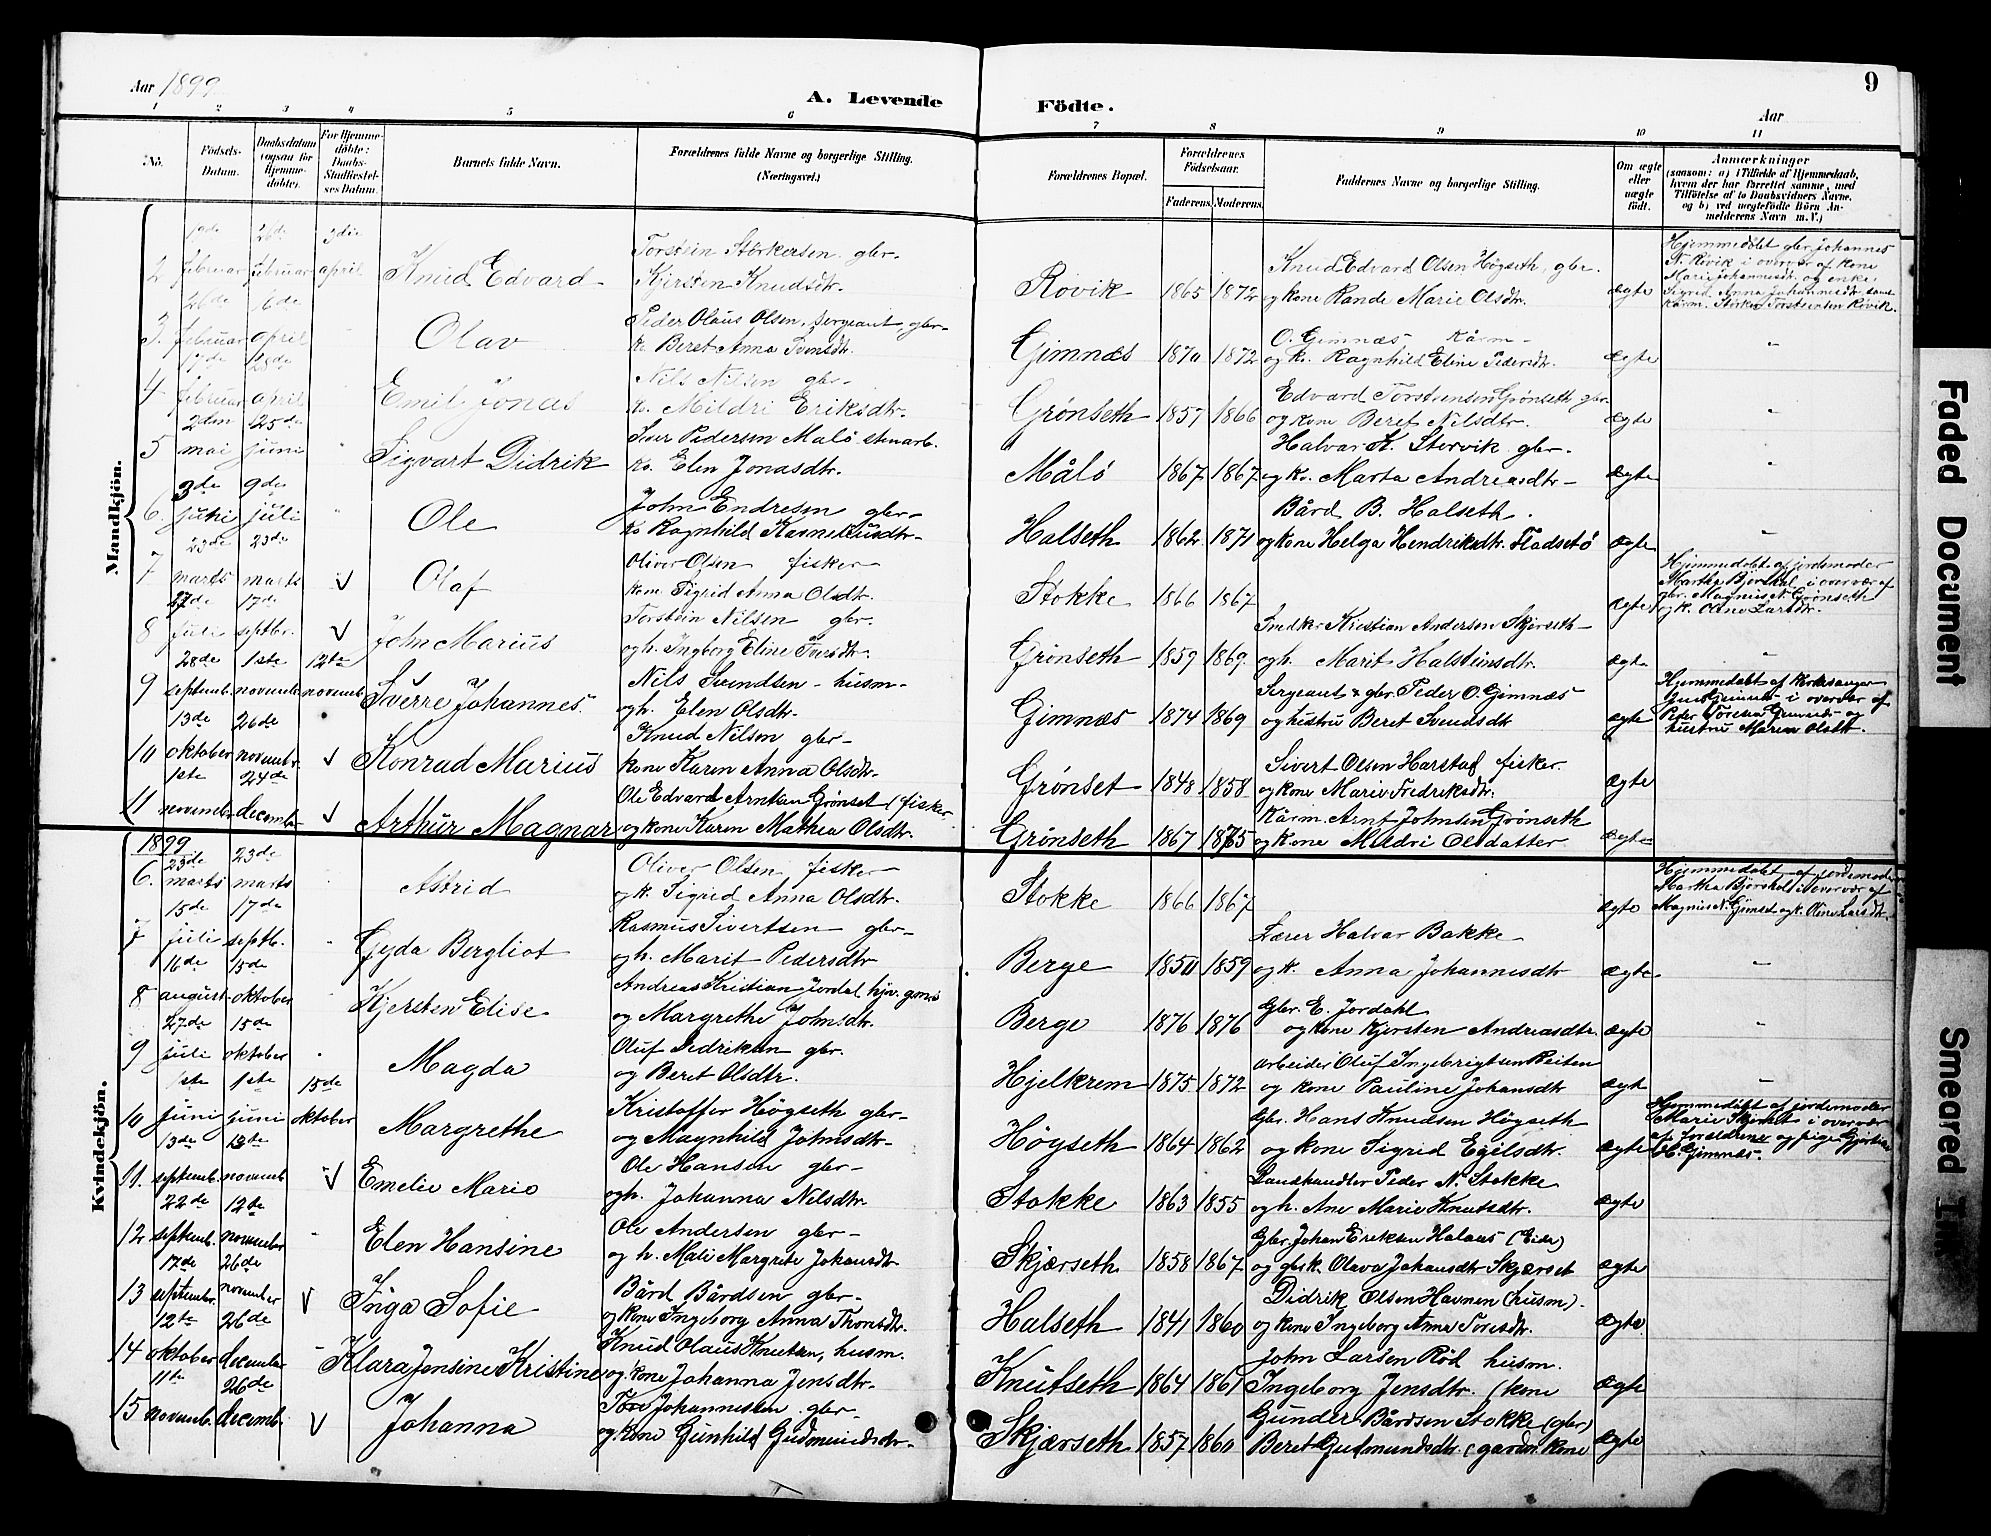 Aar 1899
A. Levende Födte.
Aar
9
1 2 3 4 5 6 7 8 9 10 11
No.
Födsels-Datum.
Daabsdatum (ogsaa for Hjemmedøbte).
For Hjemmedöbte: Daabs-Stadfæstelses Datum.
Barnets fulde Navn.
Forældrenes fulde Navne og borgerlige Stilling. (Næringsvei.)
Forældrenes Bopæl.
Forældrenes Födselsaar.
Faderens. Moderens.
Faddernes Navne og borgerlige Stilling.
Om ægte eller uægte födt.
Anmærkninger
(saasom: a) i Tilfælde af Hjemmedaab, hvem der har forrettet samme, med Tilföielse af to Daabsvidners Navne, og b) ved uægtefödte Börn Anmelderens Navn m. V.)
Mandkjön.
2 februar 26de februar 3die april Knud Edvard Torstein Størkersen gbr. Kjersten Knudsdtr. Rovik 1865 1872 Knud Edvard Olsen Høgseth, gbr. og kone Rande Marie Olsdtr. ægte Hjemmedøbt gbr. Johannes N. Rovik i overvær af kone
3. 26de februar 6te april Olav Peder Olaus Olsen, sergeant, gbr. k. Beret Anna Svensdtr. Gimnæs 1870 1872 O. Gimnæs Kårm og k. Ragnhild Eline Pedersdtr. ægte "
4 17de februar 28de april Emil Jonas Nils Nilsen gbr. k. Mildri Eriksdtr. Grønseth 1857 1866 Edvard Torstensen Grønseth gbr. og kone Beret Nilsdtr. ægte "
5 2den mai 25de juni Sigvart Didrik Iver Pedersen Malö stenarb. k. Elen Jonasdtr. Målö 1867 1867 Halvar K. Storvik gbr. og k. Marta Andreasdtr ægte "
6. 3de juni 9de juli Ole John Endresen gbr. k. Ragnhild Rasmusdtr. Halseth 1862 1871 Bård B. Halseth. og kone Helga Hendriksdtr. Fladsetö ægte "
7 23de marts 23de marts √ Olaf Oliver Olsen fisker kone Sigrid Anna Olsdtr. Stokke 1866 1867 ægte Hjemmedøbt af jordemoder Martha Bjørshol i overvær af gbr. Magnus N. Grønseth og k. Oline Larsdtr.
8 27de juli 17de septbr. √ John Marius Torstein Nilsen gbr. og h. Ingborg Eline Iversdtr. Grønseth 1859 1869 Smed Kristian Andersen Skjørseth og h. Marit Halsteinsdtr. ægte "
9 28de septemb. 1ste novembr. 12te novemb. Sverre Johannes Nils Svendsen husm og h. Elen Olsdtr. Gimnæs 1874 1869 Sergeant & gbr. Peder O. Gimnæs og hustru Beret Svendsdtr ægte Hjemmedøbt af kirkesanger
10 13de oktober 26de novembr. √ Konrad Marius Knud Nilsen gbr. kone Karen Anna Olsdtr. Grønset 1848 1858 Sivert Olsen Harstad fisker. og kone Marie Fredriksdtr. ægte
11 1ste novembr. 24de decembr √ Arthur Magnar Ole Edvard Arntsen Grønset (fisker og kone Karen Mathea Olsdtr. Grønseth 1867 1875 Kårm. Arnt Johnsen Grønseth og kone Mildri Olsdatter ægte
Kvindekjön.
1899
6. 23de marts 23de marts Astrid Oliver Olsen fisker og k. Sigrid Anna Olsdtr. Stokke 1866 1867 ægte Hjemmedøbt af jordemoder Martha Bjørshol i overvær af Magnus N. Grønset og k. Oline Larsdtr.
7 15de juli 17de septb. Gyda Bergliot Rasmus Sivertsen gbr. og h. Marit Pedersdtr Berge 1850 1859 Lærer Halvar Bakke og k. Anna Johannesdtr ægte "
8 16de august 15de oktober Kjersten Elise Andreas Kristian Jordal og Margrethe Johnsdtr. Berge 1876 1876 Gbr. E. Jordahl og kone Kjersten Andreasdtr. ægte "
9 27de juli 15de oktober Magda Oluf Didriksen gbr. og Beret Olsdtr. Hjelkrem 1875 1872 arbeider Oluf Ingebrigtsen Reiten og kone Pauline Johansdtr ægte "
10 1ste juni 1ste juni 15de oktober Margrethe Kristoffer Högseth gbr. og Magnhild Johnsdtr. Högseth 1864 1862 Gbr. Hans Knudsen Högseth og kone Sigrid Egilsdtr. ægte Hjemmedøbt af jordemoder Marie Skjørset i overvær af forældrene og pige
11. 13de septemb. 12de novemb √ Emelie Marie Ole Hansen gbr. og h. Johanna Nilsdtr. Stokke 1863 1855 Landhandler Peder N. Stokke og h. Ane Marie Knutsdtr. ægte
12 22de septemb. 12te november Elen Hansine Ole Andersen gbr. og h. Mali Margrete Johansdtr Skjærseth 1858 1867 Gbr. Johan Eriksen Halaas (Eide) og gbsk. Olava Johansdtr Skjærset ægte
13 17de septembr. 26de november √ Inga Sofie Bård Bårdsen gbr. og kone Ingeborg Anna Thoresdtr. Halseth 1841 1860 Didrik Olsen Havnen (husm). og kone Ingeborg Anna Toresdtr. ægte
14 12te oktober 26de december Klara Jensine Kristine Knud Olaus Knutsen, husm. og kone Johanna Jensdtr. Knutseth 1864 1861 John Larsen Rød husm. Ingeborg Jensdtr. (kone ægte
15 11te novemb. 26de decemb. √ Johanna Tore Johannessen gbr. og kone Gunhild Gudmundsdtr. Skjærseth 1857 1860 Gunder Bårdsen Stokke (gbr) Beret Gudmundsdtr. (gårdm. kone ægte
Faded Document
Smeared Ink